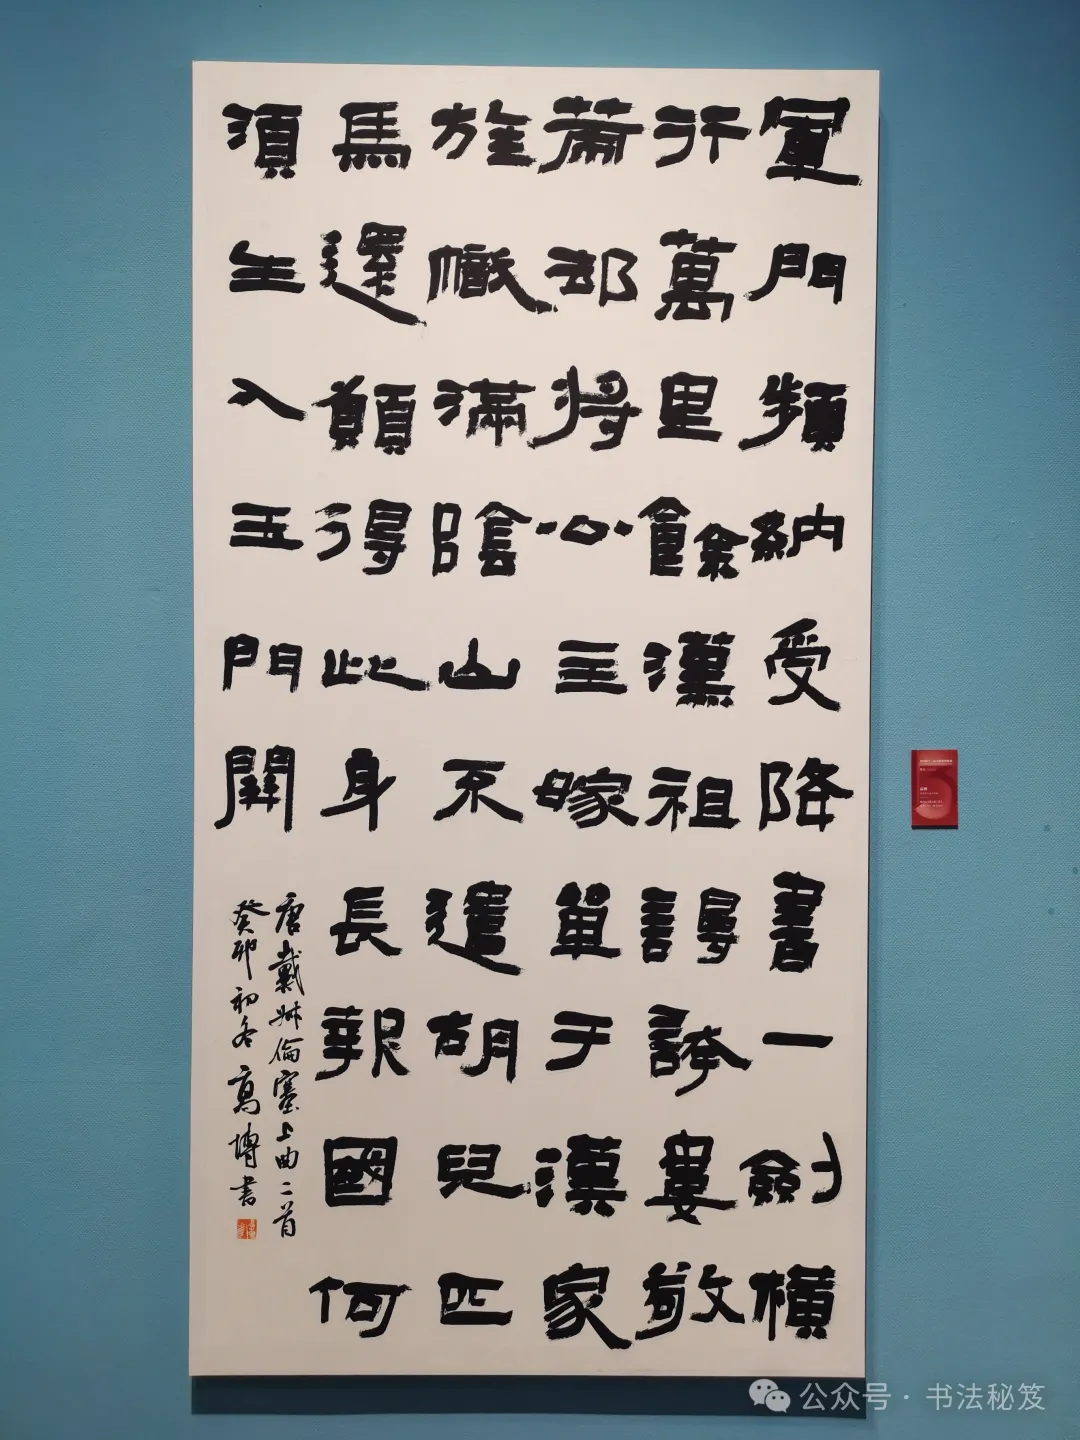 軍門頻納受降書一劍橫
行萬里餘漢祖謾誇婁敬
䇿却將公主嫁單于漢家
旌幟滿陰山不遣胡兒匹
馬還願得此身長報國何
須生入玉門関
唐戴叔倫塞上曲二首
癸卯初冬高博書
公众号·书法秘笈